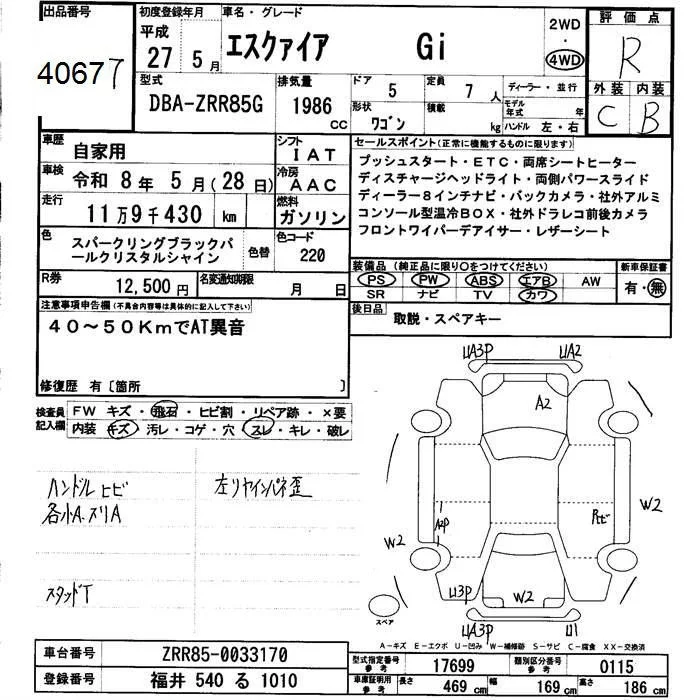 出品番号
40677
初度登録年月
平成
27 5月
車名・グレード
エスクァイア Gi
2WD
・
4WD
評価点
R
外装 内装
C B
型式
DBA-ZRR85G
排気量
1986
CC
ドア 5
定員 7 人
形状 ワゴン
積載 kg
ディーラー・並行
モデル年式 年
ハンドル 左・右
車歴
自家用
シフト
IAT
車検
令和 8年 5月(28日)
冷房
AAC
走行
11万9千430 km
燃料
ガソリン
色
スパークリングブラックパ
ールクリスタルシャイン
色替
色コード
220
R券
12,500円
名変通知期限
月 日
セールスポイント(正常に機能するものに限ります)
プッシュスタート・ETC・両席シートヒーター
ディスチャージヘッドライト・両側パワースライド
ディーラー8インチナビ・バックカメラ・社外アルミ
コンソール型温冷BOX・社外ドラレコ前後カメラ
フロントワイパーデアイサー・レザーシート
装備品(純正品に限り○をつけてください)
PS PW ABS エアB AW
SR ナビ TV カワ
新車保証書
有・無
後日品
取説・スペアキー
注意事項申告欄(不具合内容等は具体的に記入して下さい)
40~50KmでAT異音
修復歴 有〔箇所 〕
検査員
記入欄
FW キズ・飛石・ヒビ割・リペア跡・×要
内装 キズ・汚レ・コゲ・穴・スレ・キレ・破レ
ハンドルヒビ
各小A.スリA
左リヤインパネ歪
スタッドT
UA3P UA2
A2
A2P
Rヒビ
W2
W2
U3P
W2
U1
スペア
A-キズ E-エクボ U-凹み W-補修跡 S-サビ C-腐食 XX-交換済
車台番号
ZRR85-0033170
登録番号
福井 540 る 1010
型式指定番号
参考
17699
類別区分番号
参考
0115
車庫証明用
参考
長さ 469 cm
幅 169 cm
高さ 186 cm